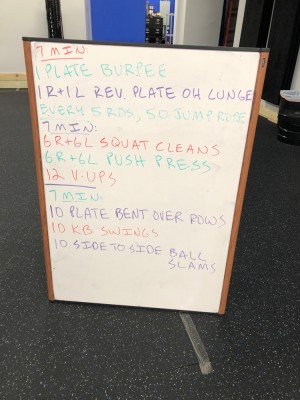 7 MIN:
1 PLATE BURPEE
1R+1L REV. PLATE OH LUNGE
EVERY 5 RDS, 50 JUMP ROPE
7 MIN:
6R+6L SQUAT CLEANS
6R+6L PUSH PRESS
12 V-UPS
7 MIN:
10 PLATE BENT OVER ROWS
10 KB SWINGS
10 SIDE TO SIDE BALL
SLAMS